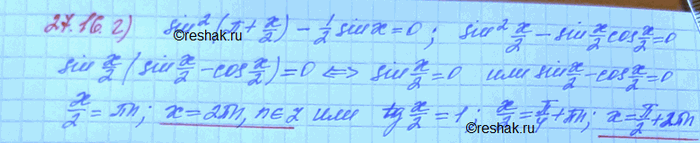 27.16. г) sin²(π + x/2) - 1/2 sin x = 0 ; sin² x/2 - sin x/2 cos x/2 = 0
©reshak.ru
sin x/2 (sin x/2 - cos x/2) = 0 <=> sin x/2 = 0 или sin x/2 - cos x/2 = 0
x/2 = πn ; x = 2πn, n∈Z или tg x/2 = 1 ; x/2 = π/4 + πn ; x = π/2 + 2πn
©reshak.ru
©reshak.ru